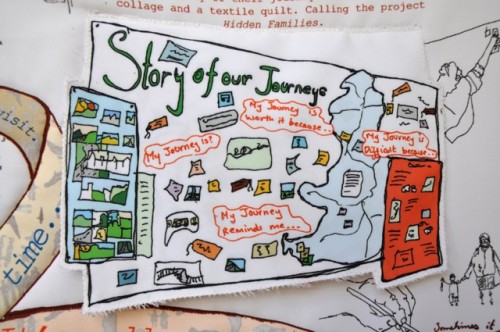 collage and a textile quilt. Calling the project
Hidden Families.
Story of our Journeys
My Journey is
worth it because...
My Journey is!
My Journey is
Difficult because...
My Journey
Reminds me....
visit.
time...
Sometimes it